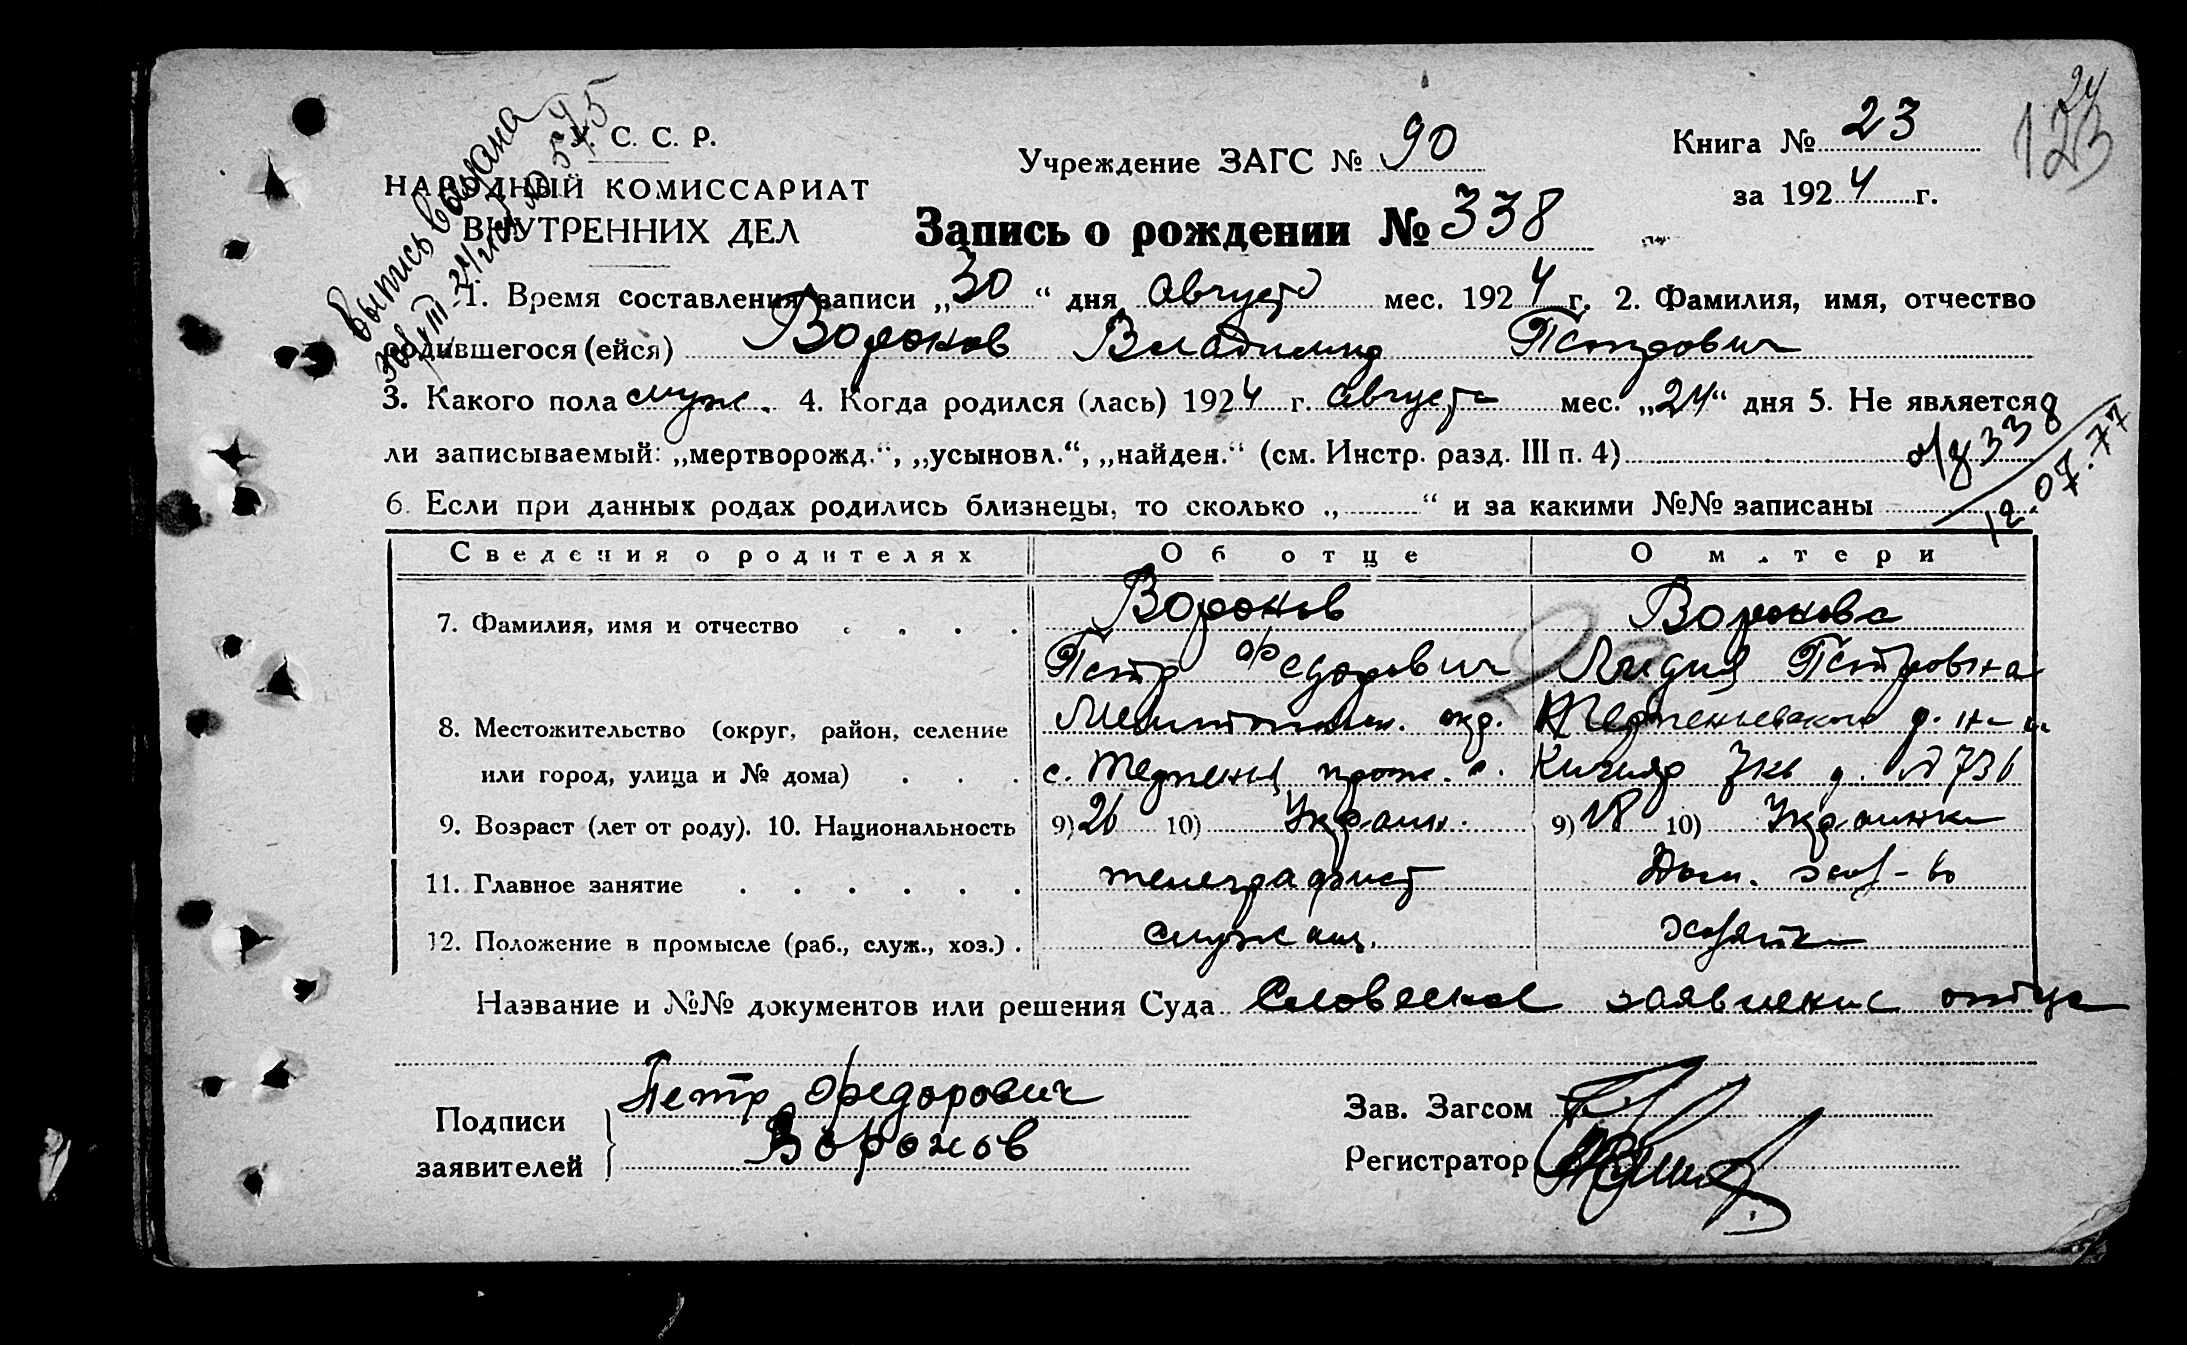 У. С. С. Р.
НАРОДНЫЙ КОМИССАРИАТ
ВНУТРЕННИХ ДЕЛ
Выпись выдана
Учреждение ЗАГС № 90
Книга № 23
за 1924 г.
123
24
Запись о рождении № 338
1. Время составления записи „30“ дня Августа мес. 1924 г. 2. Фамилия, имя, отчество
родившегося (ейся) Воронов Владимир Петрович
3. Какого пола муж. 4. Когда родился (лась) 1924 г. Августа мес. „24“ дня 5. Не является
ли записываемый: „мертворожд.“, „усыновл.“, „найден.“ (см. Инстр. разд. III п. 4)
338
12.07.77
6. Если при данных родах родились близнецы, то сколько „ “ и за какими №№ записаны
Сведения о родителях Об отце О матери
7. Фамилия, имя и отчество . . . . Воронов Воронова
Петр Федорович Лидия Петровна
8. Местожительство (округ, район, селение Мелитопольск. окр.
или город, улица и № дома) . . . с. Терпенья прож. с. Кизияр
9. Возраст (лет от роду). 10. Национальность 9) 26 10) Украин. 9) 18 10) Украинка
11. Главное занятие . . . . . . телеграфист Дом. хоз-во
12. Положение в промысле (раб., служ., хоз.) . служащ. хозяйка
Название и №№ документов или решения Суда Словесное заявление отца
Подписи
заявителей
Петр Федорович
Воронов
Зав. Загсом
Регистратор